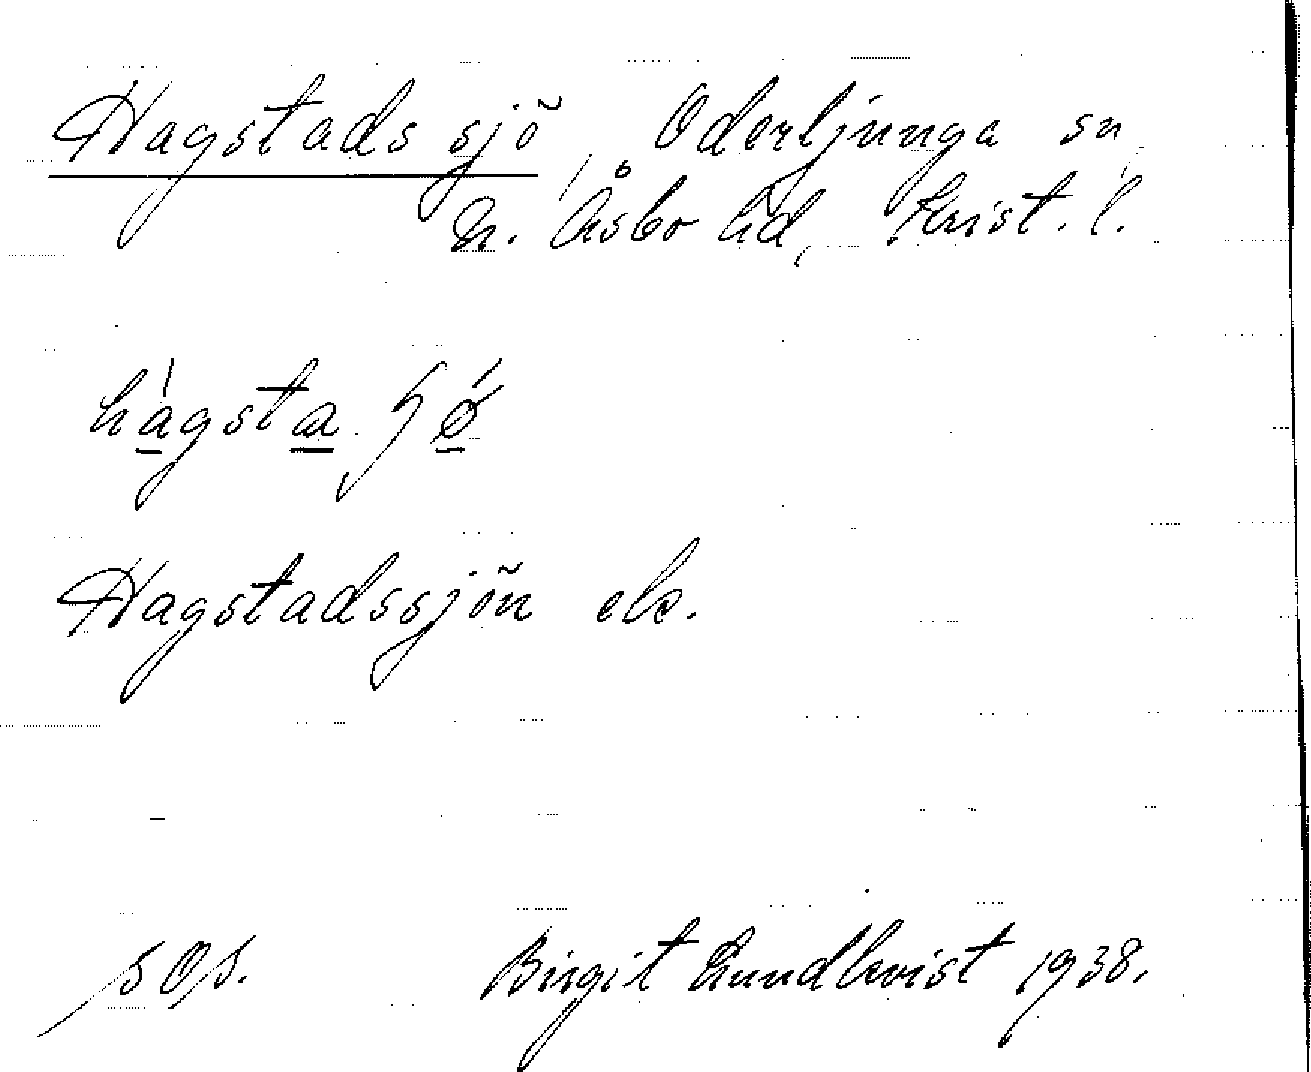 Hagstads sjö, Oderljunga sn,
N. Åsbo hd, Krist. l.
hágsta ɧǿ
Hagstadssjön ek.
Birgit Lundkvist 1938.